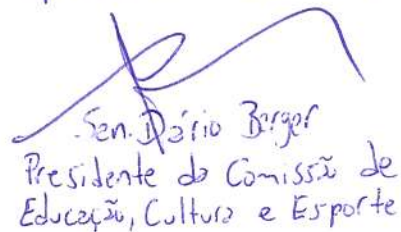 Sen. Dário Berger
Presidente da Comissão de
Educação, Cultura e Esporte